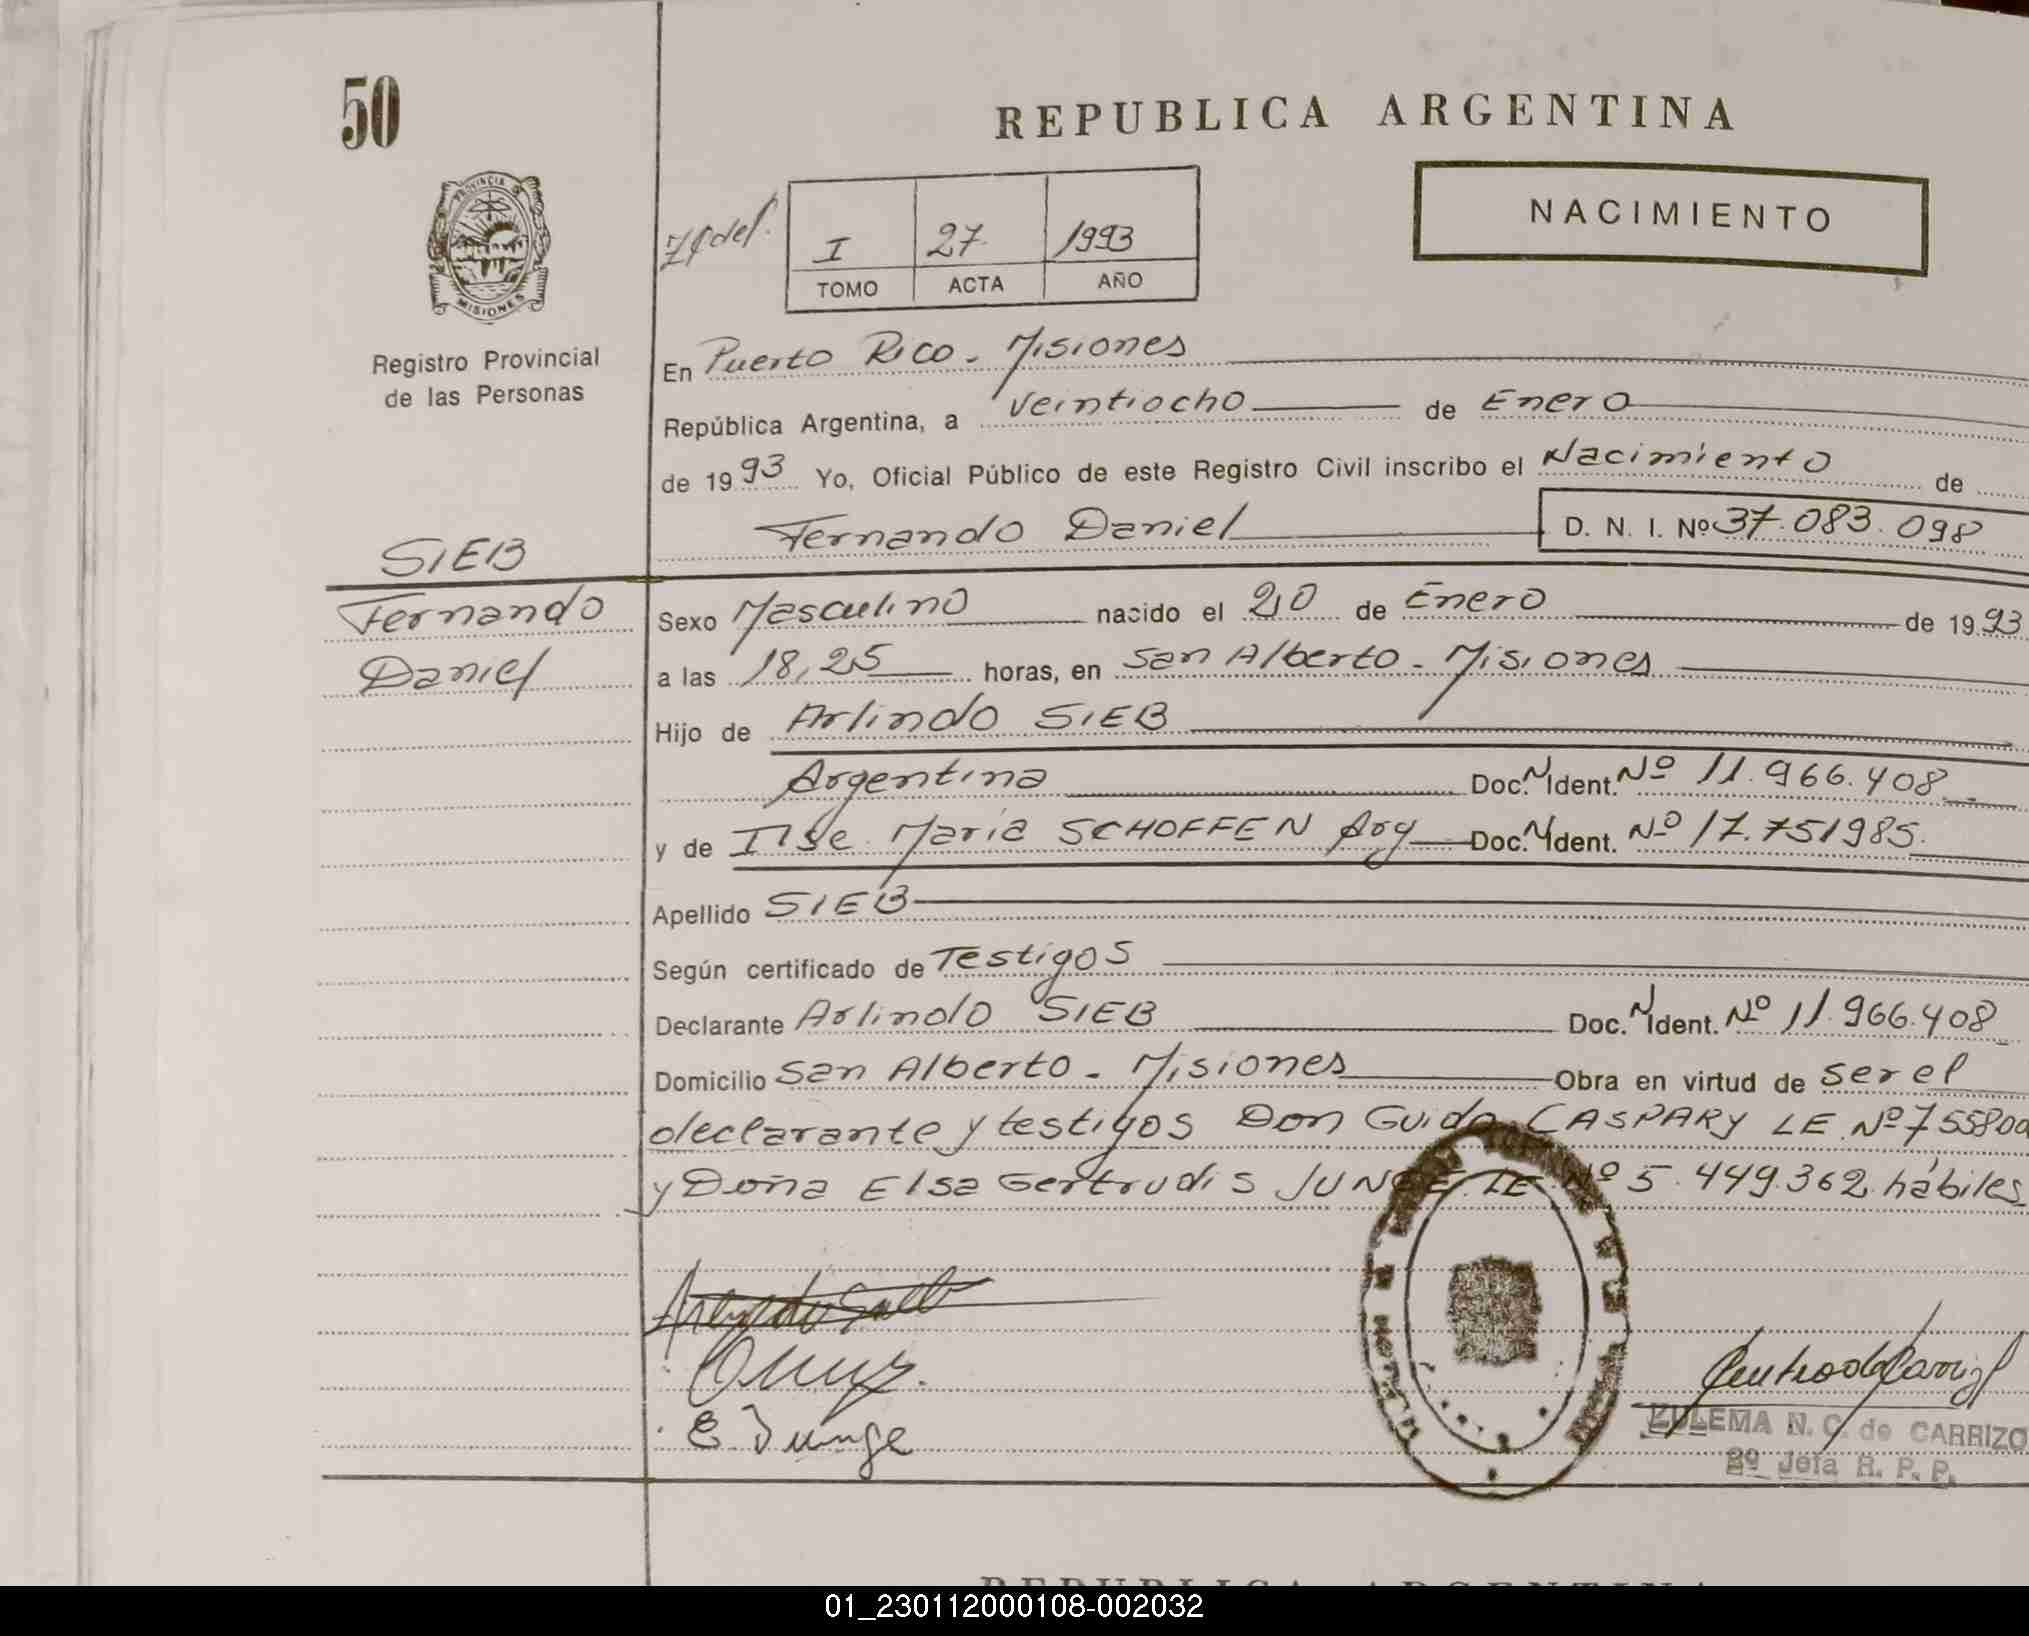 50
REPUBLICA ARGENTINA
PROVINCIA D
MISIONES
I 27 1993
TOMO ACTA AÑO
NACIMIENTO
Registro Provincial
de las Personas
En Puerto Rico - Misiones
República Argentina, a veintiocho de Enero
de 1993 Yo, Oficial Público de este Registro Civil inscribo el Nacimiento de
Fernando Daniel D. N. I. Nº 37.083.098
SIEB
Fernando
Daniel
Sexo Masculino nacido el 20 de Enero de 1993
a las 18,25 horas, en San Alberto - Misiones
Hijo de Arlindo SIEB
Argentina Doc. N Ident. Nº 11.966.408
y de Ilse María SCHOFFEN Arg Doc. N Ident. Nº 17.751985.
Apellido SIEB
Según certificado de Testigos
Declarante Arlindo SIEB Doc. N Ident. Nº 11.966.408
Domicilio San Alberto - Misiones Obra en virtud de ser el
declarante y testigos Don Guido CASPARY LE Nº 75580
y Doña Elsa Gertrudis JUNGE LE Nº 5.449.362 hábiles
E Junge
ZULEMA N. C. de CARRIZO
2º Jefa R. P. P.
REPUBLICA ARGENTINA
01_230112000108-002032